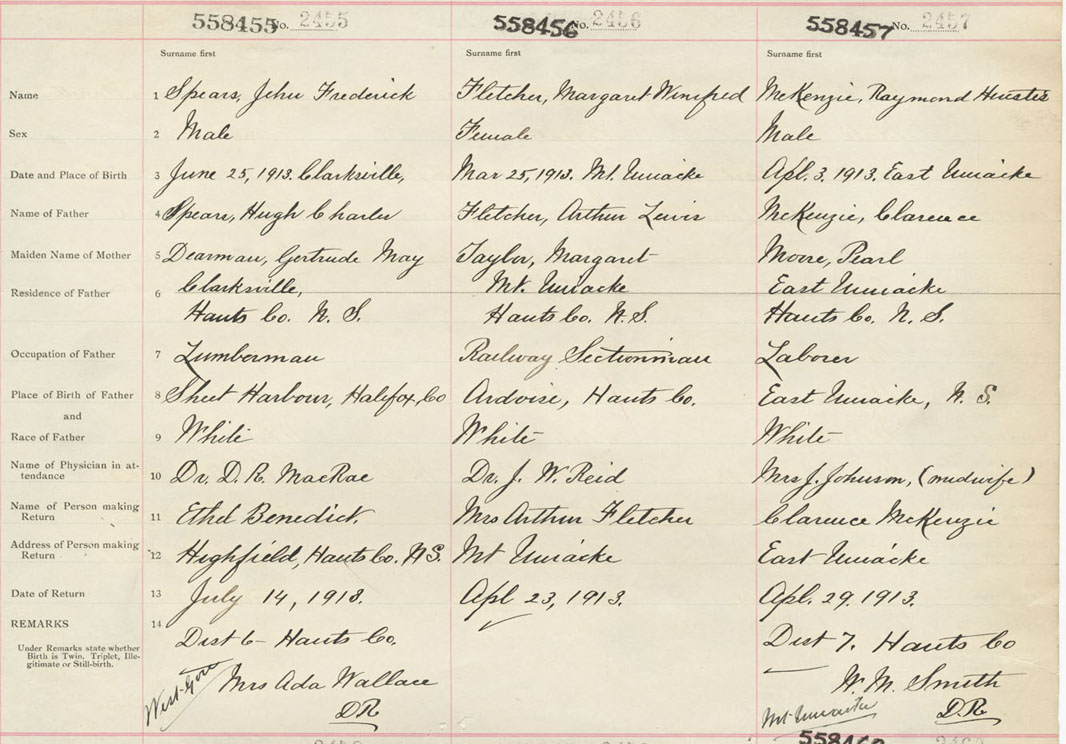 558455 No. 2455 558456 No. 2456 558457 No. 2457
Surname first Surname first Surname first
Name 1 Spears, John Frederick Fletcher, Margaret Winifred McKenzie, Raymond
Sex 2 Male Female Male
Date and Place of Birth 3 June 25, 1913. Clarksville, Mar 25, 1913. Mt. Uniacke Apl. 3. 1913. East Uniacke
Name of Father 4 Spears, Hugh Charles Fletcher, Arthur Lewis McKenzie, Clarence
Maiden Name of Mother 5 Dearman, Gertrude May Taylor, Margaret Moore, Pearl
Residence of Father 6 Clarksville, Mt. Uniacke East Uniacke
Hants Co. N. S. Hants Co. N. S. Hants Co. N. S.
Occupation of Father 7 Lumberman Railway Sectionman Laborer
Place of Birth of Father 8 Sheet Harbour, Halifax, Co Ardoise, Hants Co. East Uniacke, N. S.
and
Race of Father 9 White White White
Name of Physician in at-
tendance 10 Dr. D. R. MacRae Dr. J. W. Reid Mrs J. Johnson, (midwife)
Name of Person making
Return 11 Ethel Benedict. Mrs Arthur Fletcher Clarence McKenzie
Address of Person making
Return 12 Highfield, Hants Co. N.S. Mt Uniacke East Uniacke
Date of Return 13 July 14, 1913. Apl 23, 1913. Apl. 29. 1913.
REMARKS 14
Under Remarks state whether
Birth is Twin, Triplet, Ille-
gitimate or Still-birth.
Dist 6 - Hants Co. Dist 7. Hants Co
West Gore Mrs Ada Wallace W. M. Smith
D.R Mt Uniacke D.R.
558460 2460